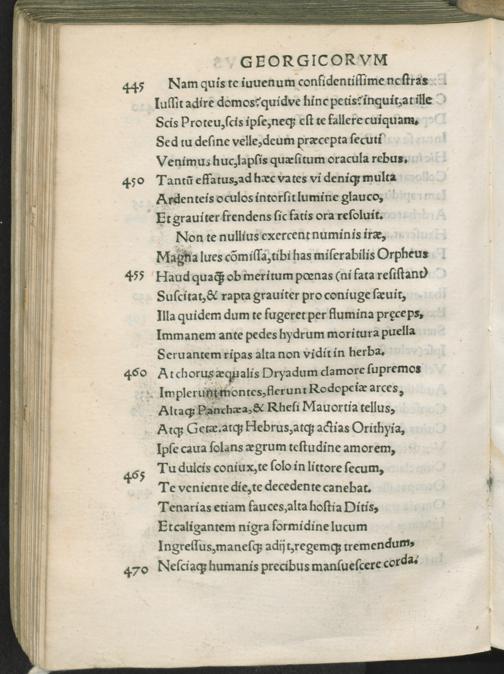 GEORGICORVM
445 Nam quis te iuuenum confidentissime nostras
Iussit adire domos? quidve hinc petis? inquit, at ille
Scis Proteu, scis ipse, neqꝫ est te fallere cuiquam,
Sed tu desine velle, deum præcepta secuti
Venimus huc, lapsis quæsitum oracula rebus.
450 Tantũ effatus, ad hæc vates vi deniqꝫ multa
Ardenteis oculos intorsit lumine glauco,
Et grauiter frendens sic fatis ora resoluit.
Non te nullius exercent numinis iræ,
Magna lues cõmissa, tibi has miserabilis Orpheus
455 Haud quaꝗ̃ ob meritum pœnas (ni fata resistant)
Suscitat, & rapta grauiter pro coniuge sæuit,
Illa quidem dum te fugeret per flumina pręceps,
Immanem ante pedes hydrum moritura puella
Seruantem ripas alta non vidit in herba.
460 At chorus æqualis Dryadum clamore supremos
Implerunt montes, flerunt Rodopeiæ arces,
Altaqꝫ Panchæa, & Rhesi Mauortia tellus,
Atqꝫ Getæ. atqꝫ Hebrus, atqꝫ actias Orithyia,
Ipse caua solans ægrum testudine amorem,
465 Tu dulcis coniux, te solo in littore secum,
Te veniente die, te decedente canebat.
Tenarias etiam fauces, alta hostia Ditis,
Et caligantem nigra formidine lucum
Ingressus, manesqꝫ adijt, regemqꝫ tremendum,
470 Nesciaqꝫ humanis precibus mansuescere corda.